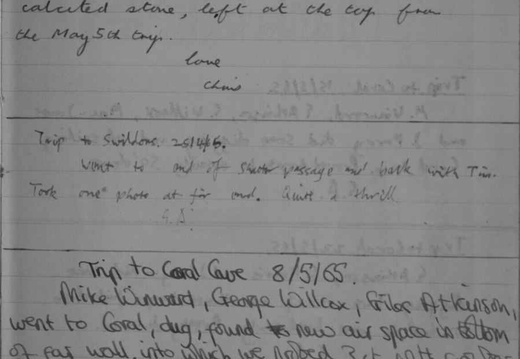 calcited stone, left at the top from
the May 5th trip.
love
Chris
Trip to Swildons 25/4/65.
Went to end of passage and back with Tim.
Took one photo at far end. Quite a thrill
Trip to Coral Cave 8/5/65.
Mike Winward, George Willcox, Giles Atkinson,
went to Coral, dug, found new air space in bottom
of far wall into which we